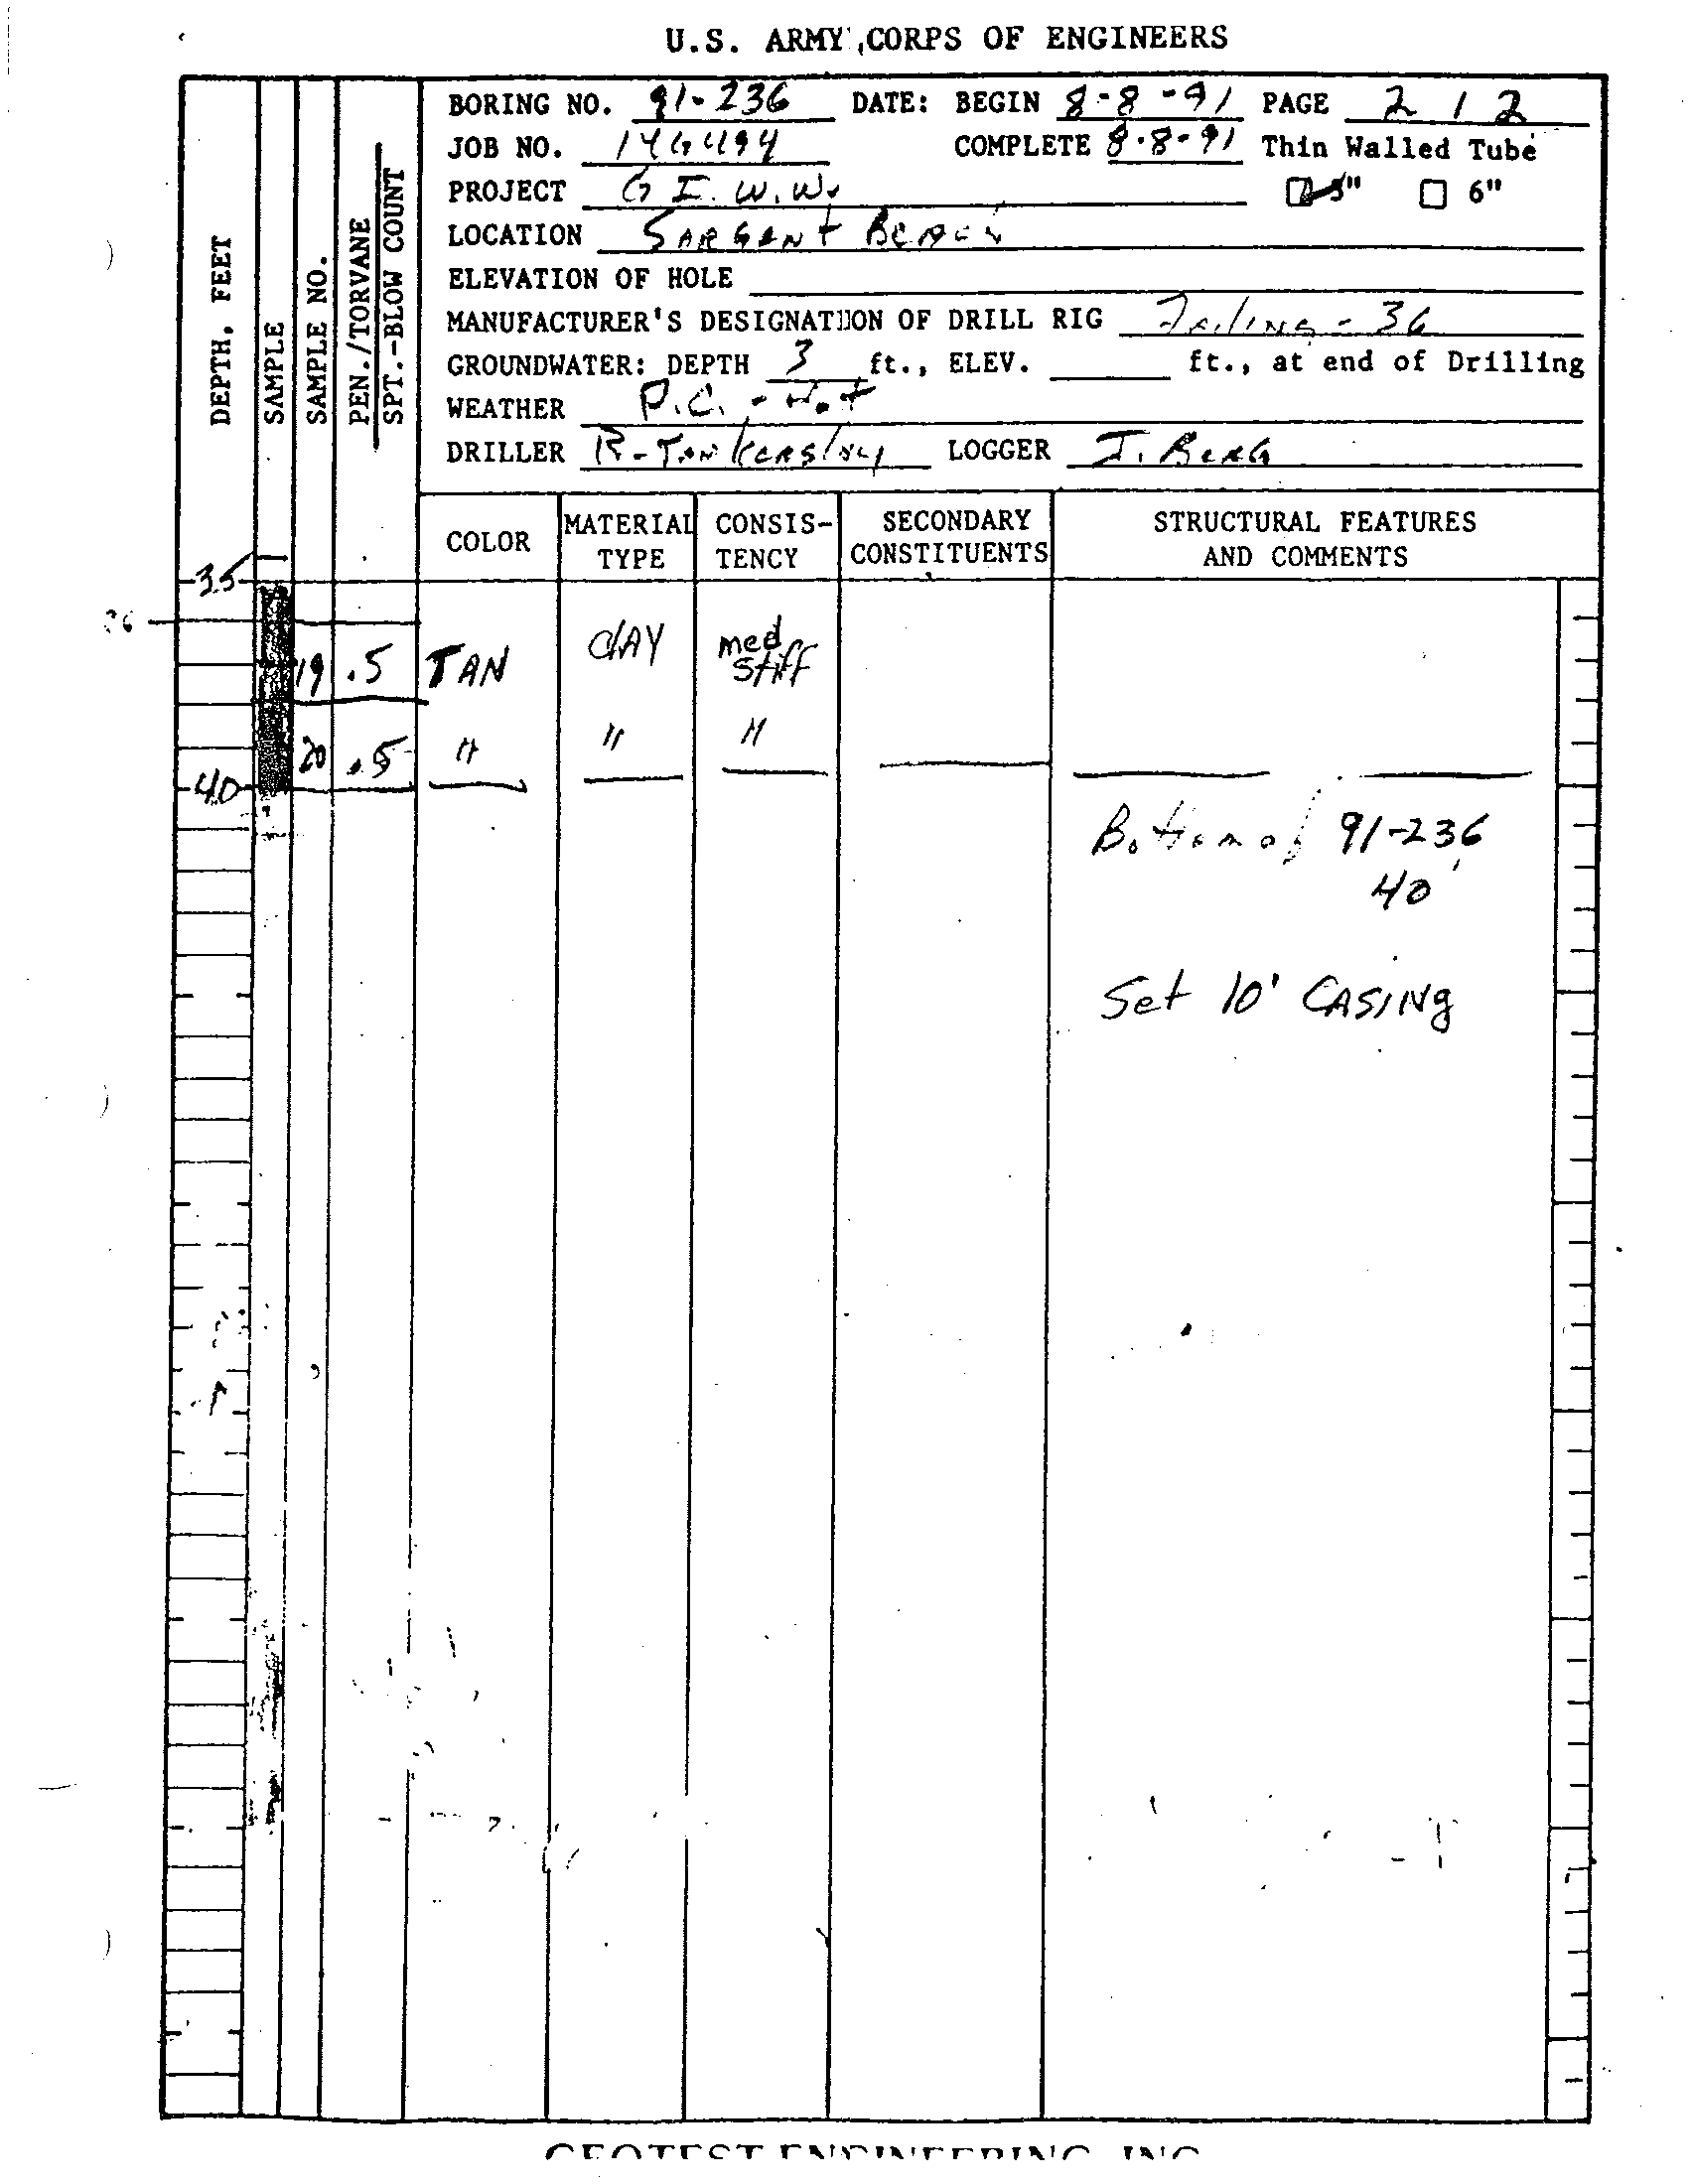 U.S. ARMY CORPS OF ENGINEERS
BORING NO. 91-236 DATE: BEGIN 8-8-91 PAGE 2 / 2
JOB NO. 14G494 COMPLETE 8-8-91 Thin Walled Tube
PROJECT G I.W.W. 5" 6"
LOCATION SARGENT BEACH
ELEVATION OF HOLE
MANUFACTURER'S DESIGNATION OF DRILL RIG Failing - 36
GROUNDWATER: DEPTH 3 ft., ELEV. ft., at end of Drilling
WEATHER P.C. - Hot
DRILLER R-Tankersley LOGGER J. BERG
DEPTH, FEET
SAMPLE
SAMPLE NO.
PEN./TORVANE
SPT.-BLOW COUNT
COLOR
MATERIAL TYPE
CONSIS-TENCY
SECONDARY CONSTITUENTS
STRUCTURAL FEATURES AND COMMENTS
35
36
19 .5 TAN CLAY med stiff
20 .5 " " "
40
Bottom of 91-236
40'
Set 10' CASINg
GEOTEST ENGINEERING, INC